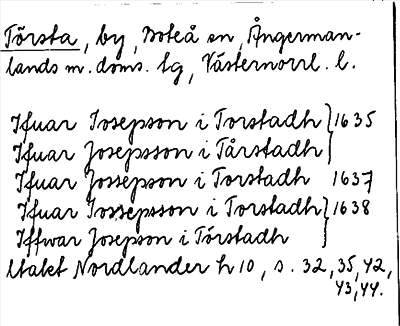 Törsta, by, Boteå sn, Ångerman-
lands m. doms. lg, Västernorrl. l.
Ifuar Iosepsson i Torstadh } 1635
Ifuar Josepsson i Tårstadh
Ifuar Jossepsson i Torstadh 1637
Ifuar Iossepsson i Torstadh } 1638
Iffwar Josepson i Törstadh
Utalet Nordlander h 10, s. 32, 35, 42,
43, 44.